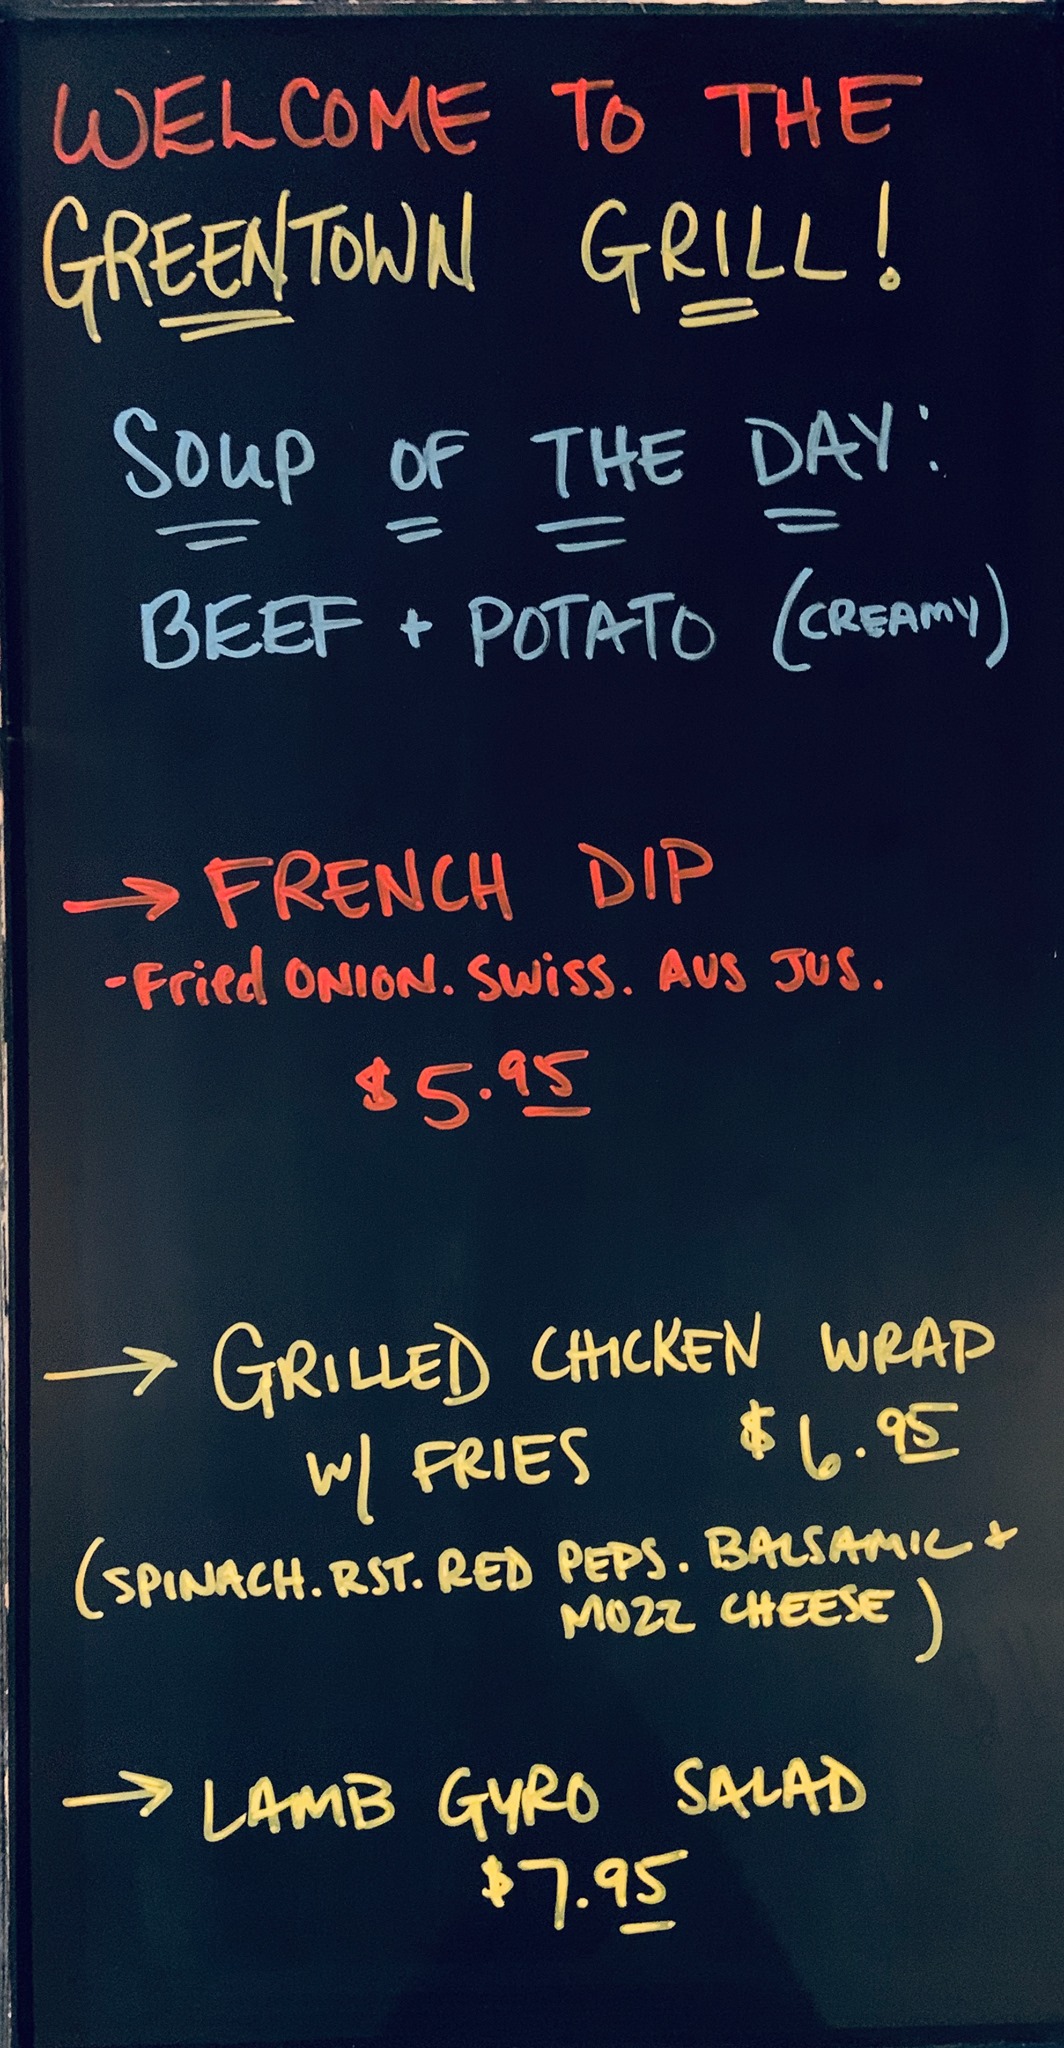 WELCOME TO THE
GREENTOWN GRILL!
SOUP OF THE DAY:
BEEF + POTATO (CREAMY)
→ FRENCH DIP
-Fried ONION. SWISS. AUS JUS.
$5.95
→ GRILLED CHICKEN WRAP
W/ FRIES $6.95
(SPINACH. RST. RED PEPS. BALSAMIC +
MOZZ CHEESE)
→ LAMB GYRO SALAD
$7.95